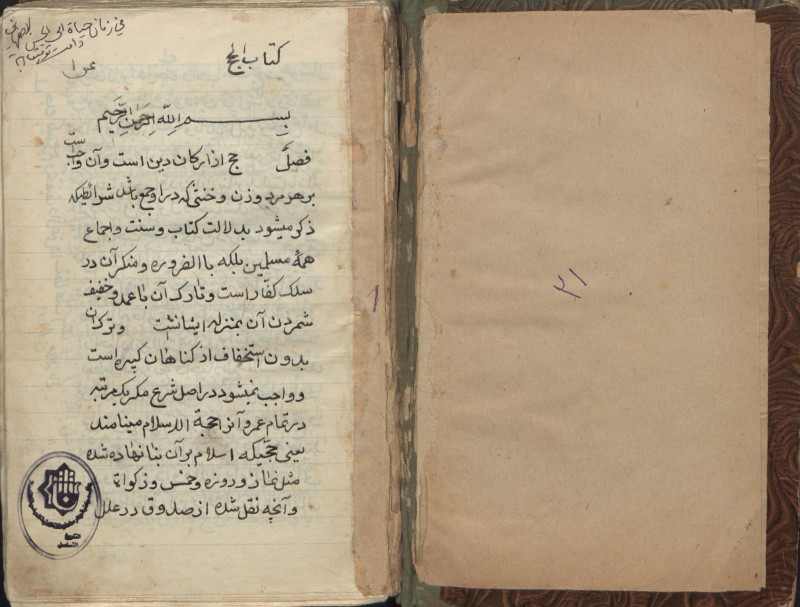 کتاب الحج
بسم الله الرحمن الرحیم
فصل حج از ارکان دین است و آن واجب است
بر هر مرد و زن و خنثی که در او جمع باشد شرائطیکه
ذکر میشود بدلالت کتاب و سنت و اجماع
همهٔ مسلمین بلکه باالضروره و منکر آن در
سلک کفار است و تارک آن با عمد و خفیف
شمردن آن بمنزله ایشانست و ترک آن
بدون استخفاف از کناهان کبیره است
و واجب نمیشود در اصل شرع مکر یکمرتبه
در تمام عمر و آنرا حجة الاسلام مینامند
یعنی حجّیکه اسلام بر آن بنا نهاده شده
مثل نماز و روزه و خمس و زکواة
و آنچه نقل شده از صدوق در علل
۲۱